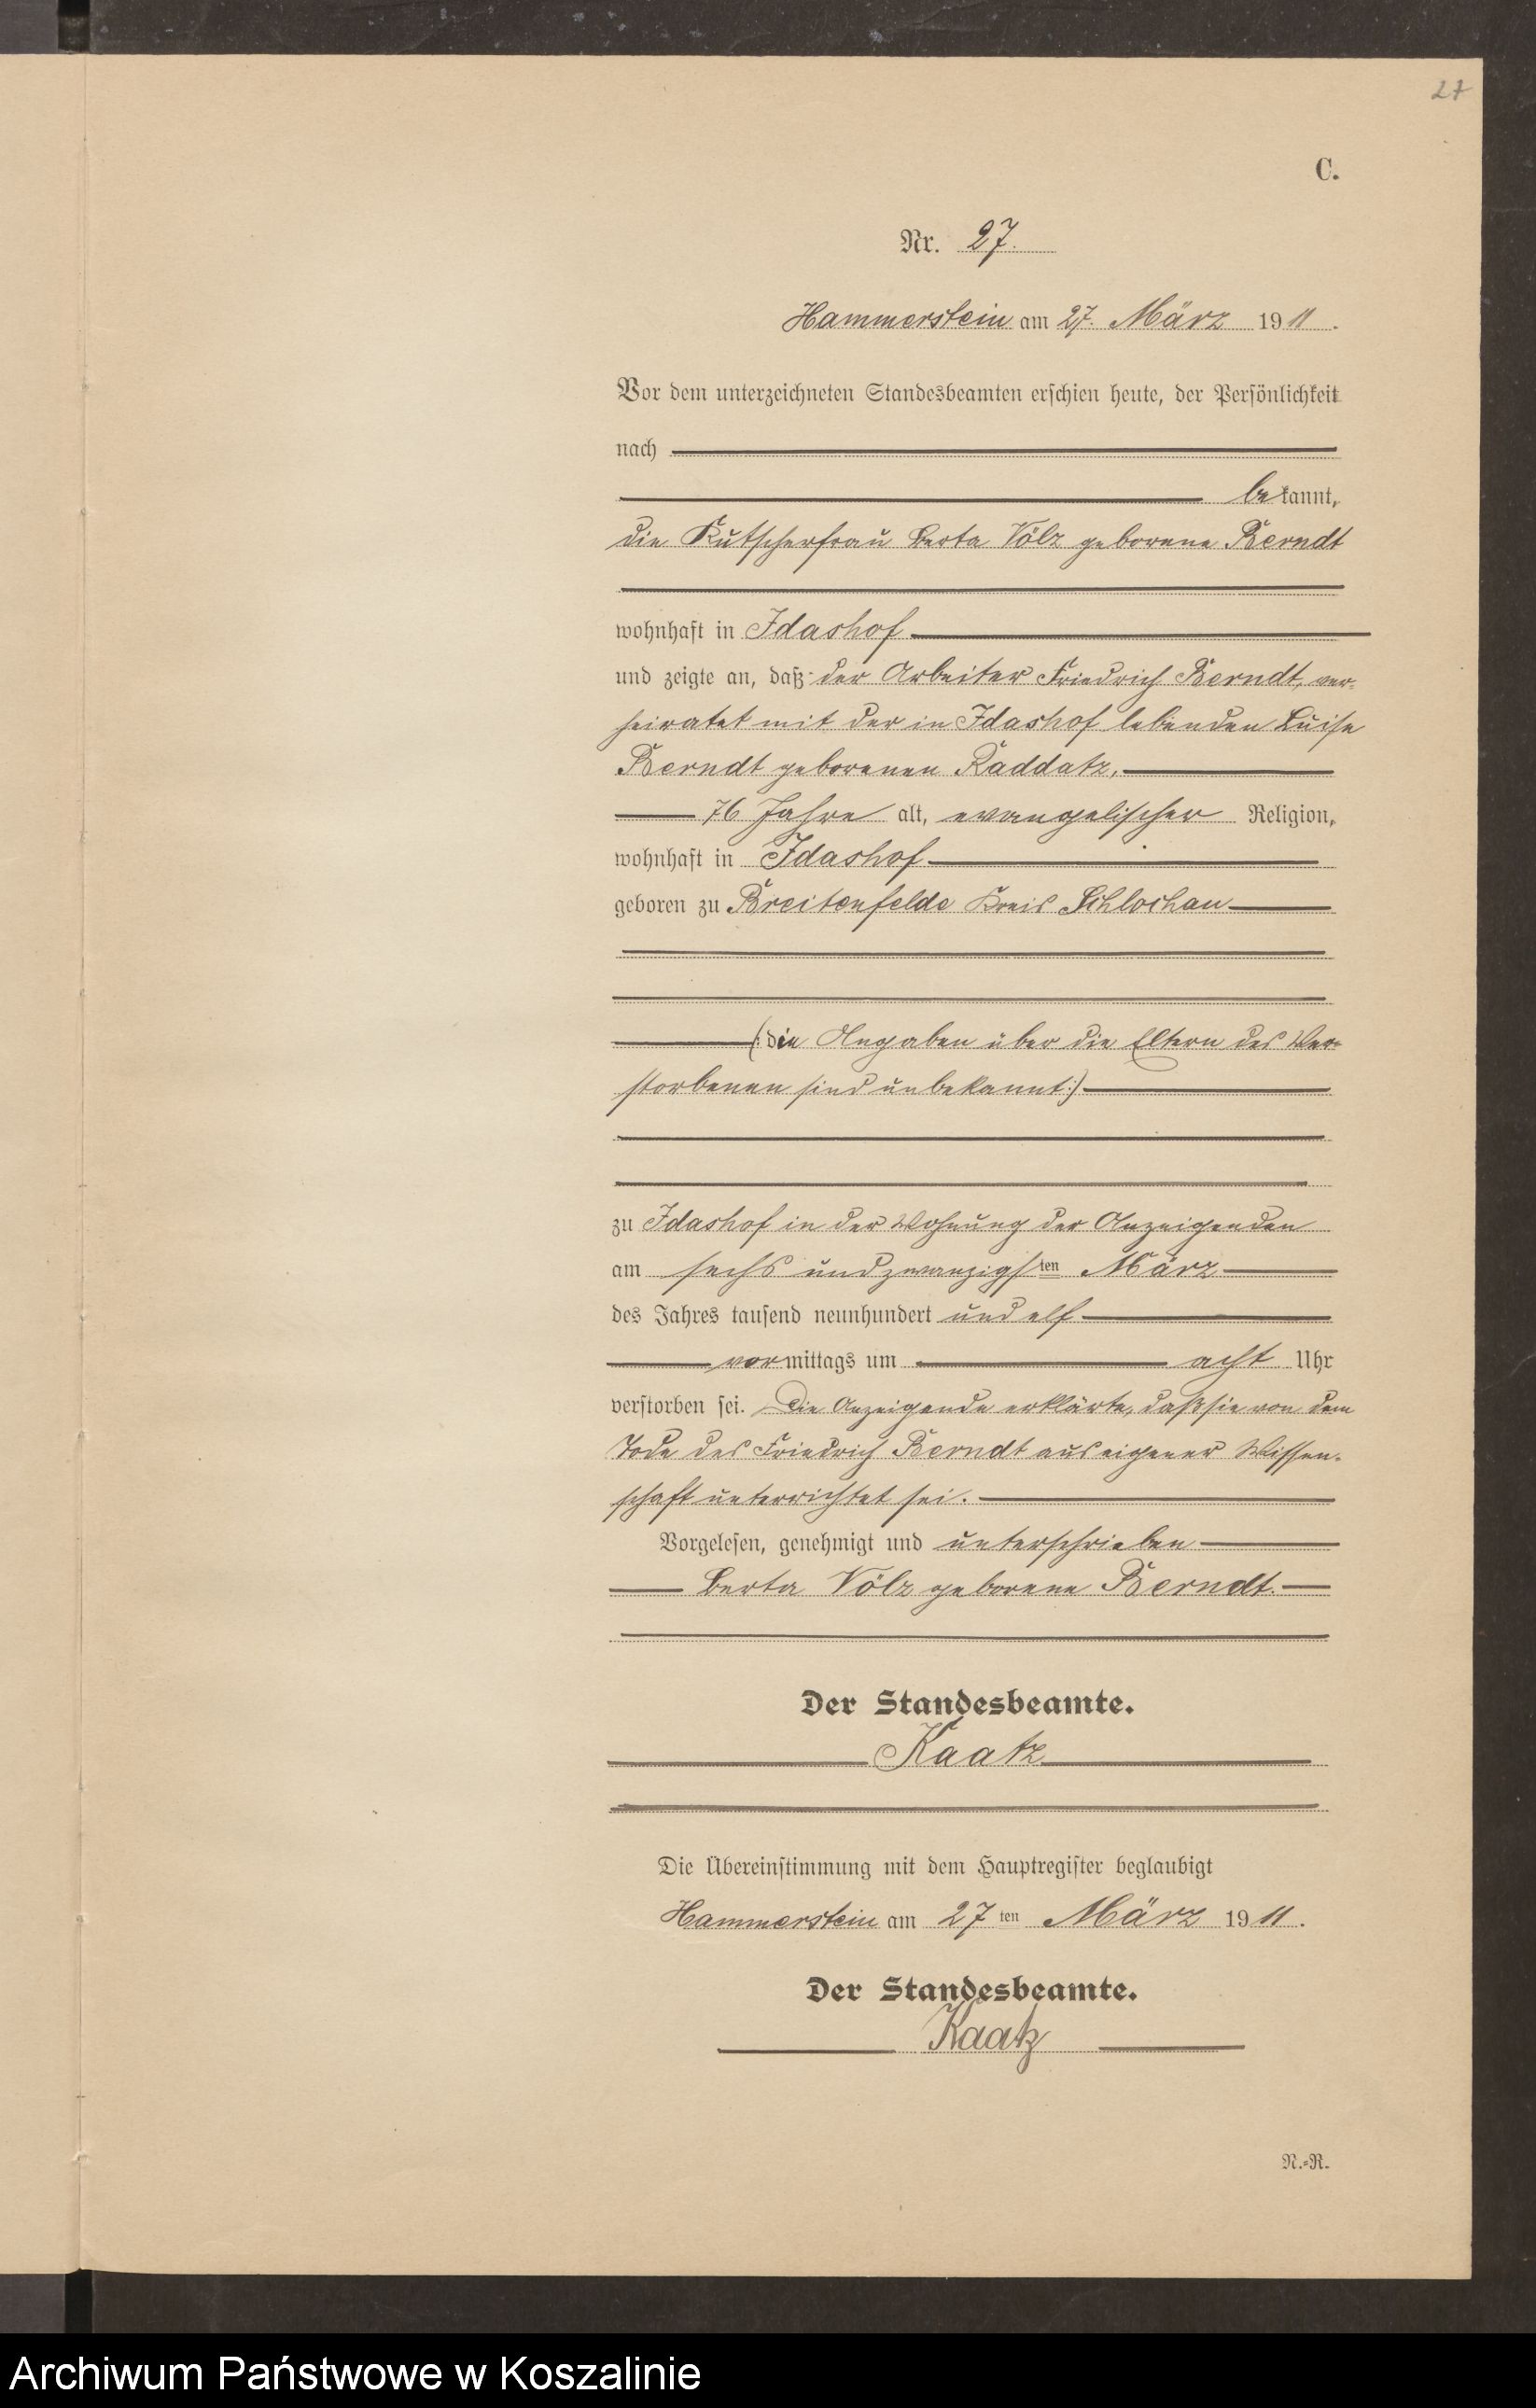 27
C.
Nr. 27.
Hammerstein am 27. März 1911.
Vor dem unterzeichneten Standesbeamten erschien heute, der Persönlichkeit
nach
bekannt,
die Kutscherfrau Berta Völz geborene Berndt
wohnhaft in Idashof
und zeigte an, daß der Arbeiter Friedrich Berndt, ver-
heiratet mit der in Idashof lebenden Luise
Berndt geborenen Raddatz,
76 Jahre alt, evangelischer Religion,
wohnhaft in Idashof
geboren zu Breitenfelde Kreis Schlochau
(:die Angaben über die Eltern des Ver-
storbenen sind unbekannt:)
zu Idashof in der Wohnung der Anzeigenden
am sechs und zwanzigsten März
des Jahres tausend neunhundert und elf
vormittags um acht Uhr
verstorben sei. Die Anzeigende erklärte, daß sie von dem
Tode des Friedrich Berndt aus eigener Wissen-
schaft unterrichtet sei.
Vorgelesen, genehmigt und unterschrieben
Berta Völz geborene Berndt.
Der Standesbeamte.
Kaatz
Die Übereinstimmung mit dem Hauptregister beglaubigt
Hammerstein am 27ten März 1911.
Der Standesbeamte.
Kaatz
N.-R.
Archiwum Państwowe w Koszalinie